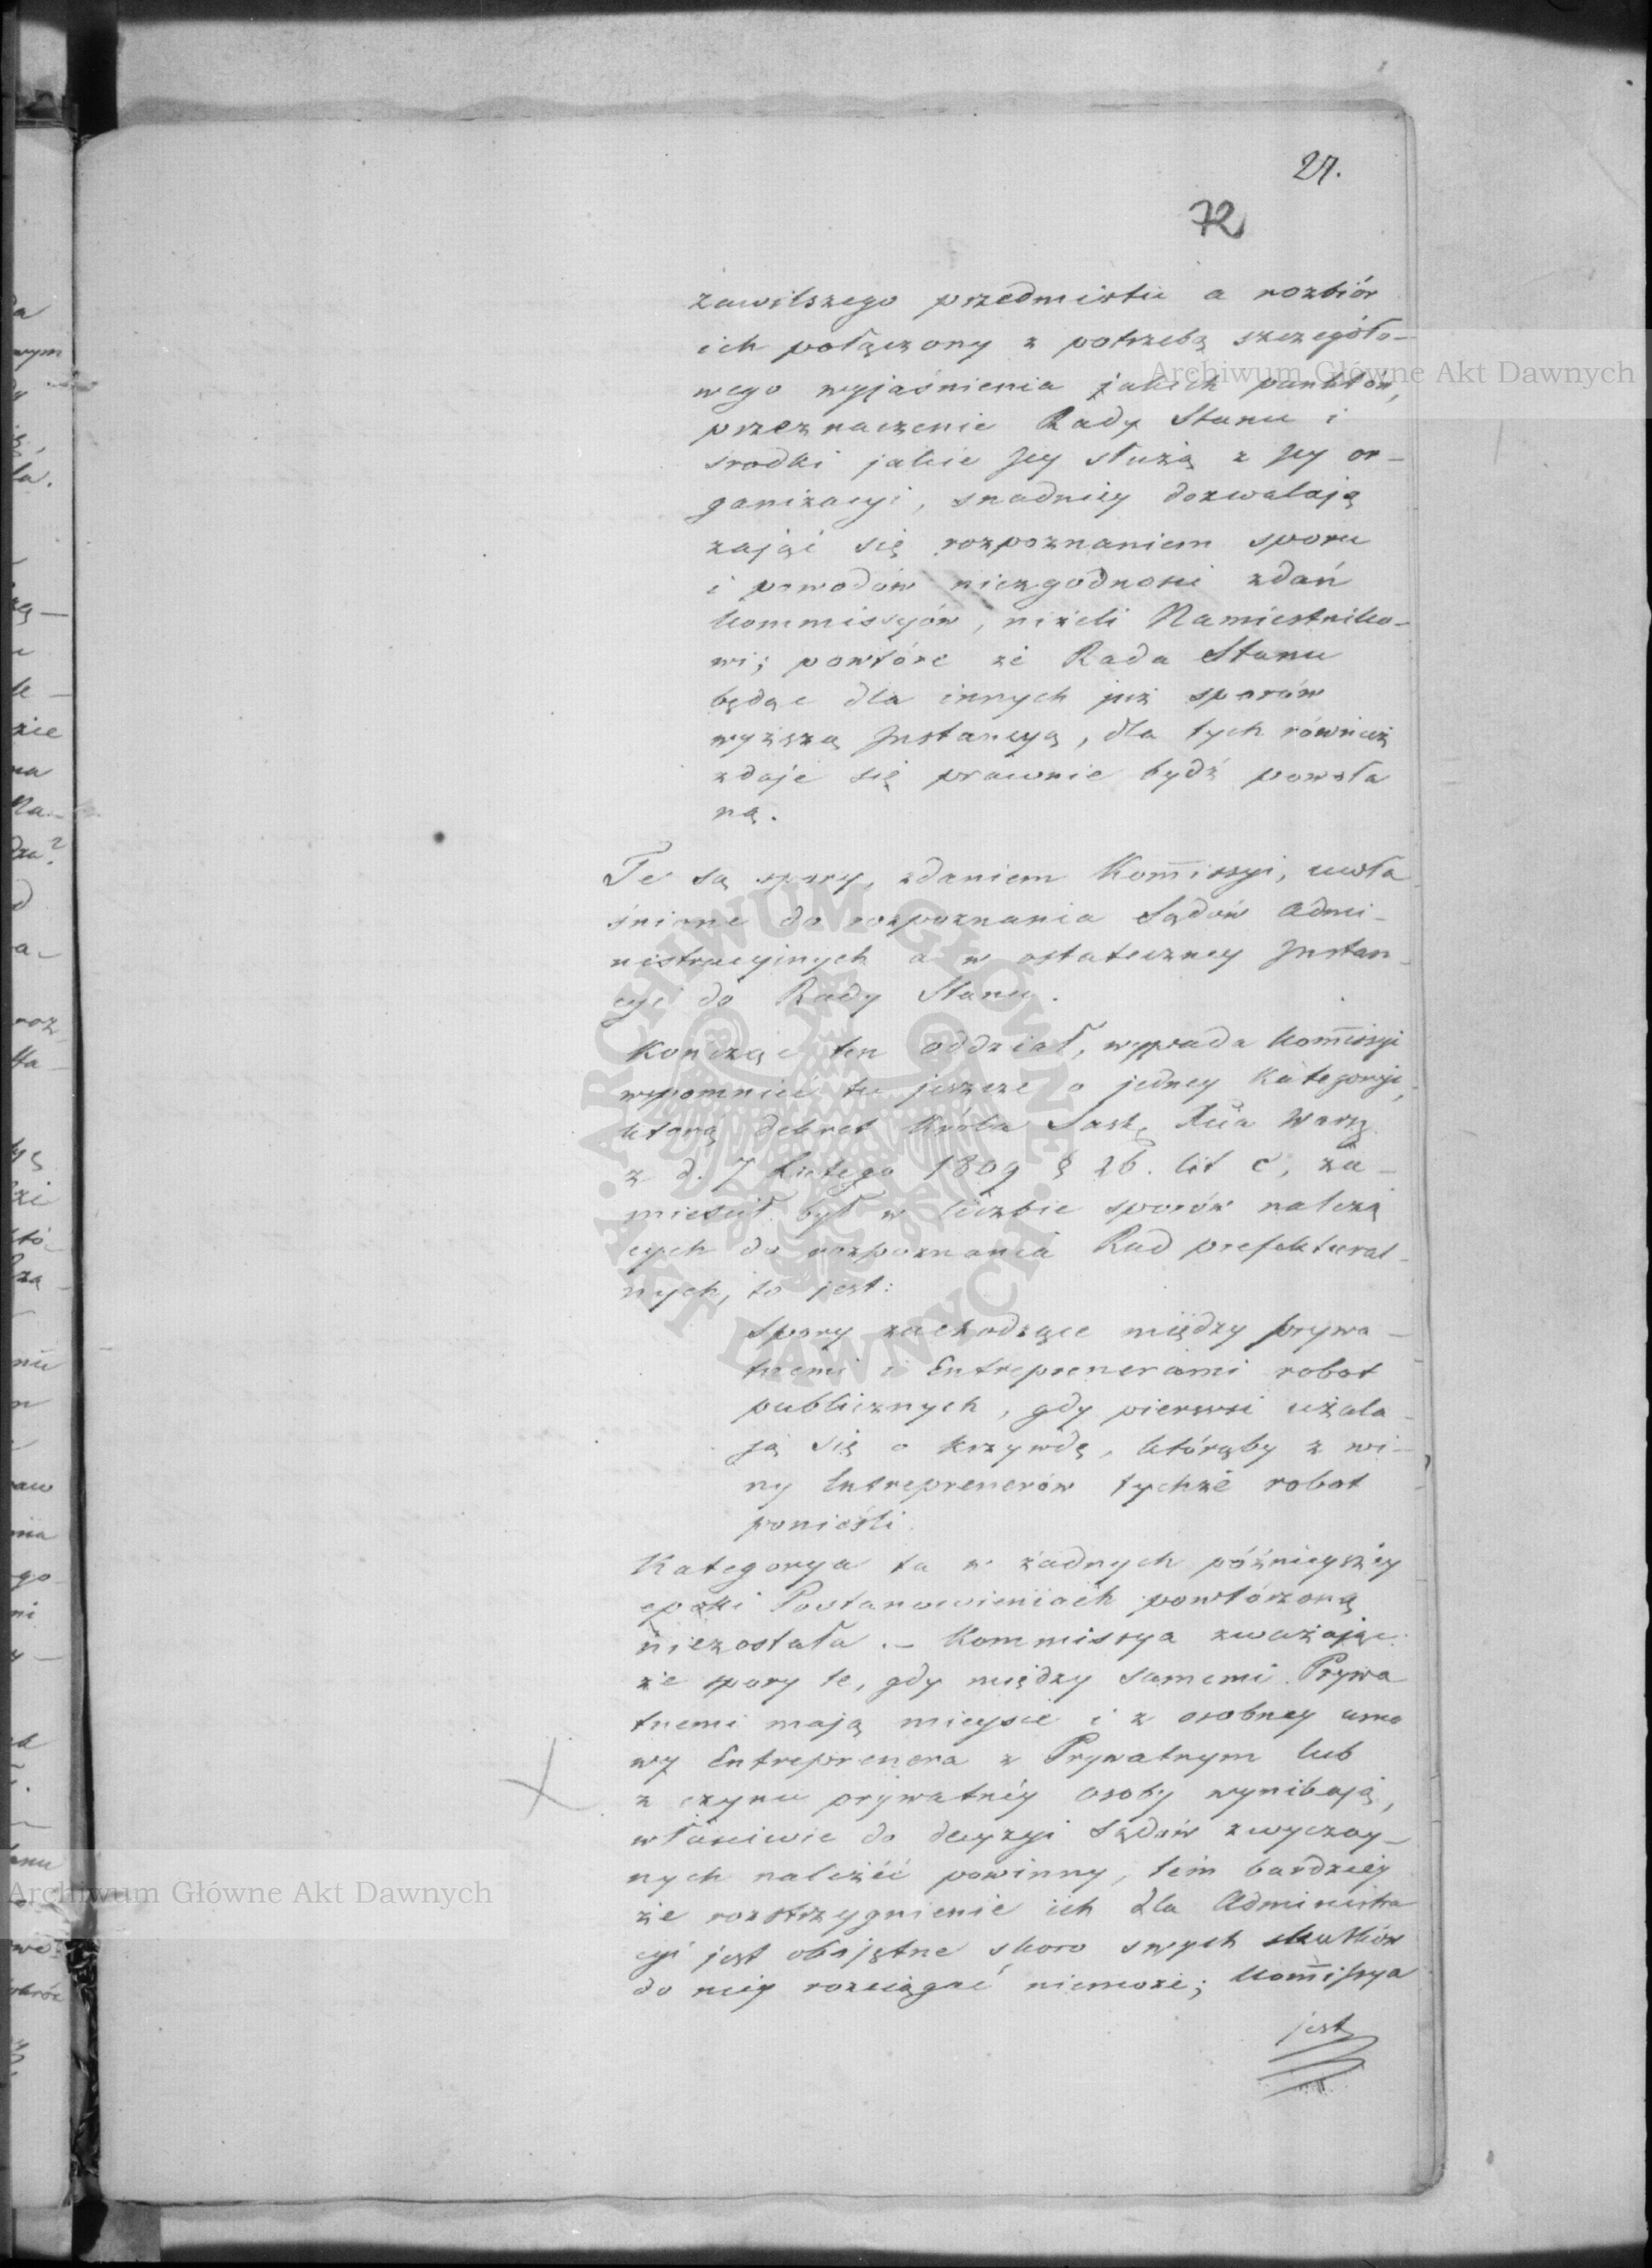 27.
72
zawilszego przedmiotu a rozbiór
ich połączony z potrzebą szczegóło-
wego wyjaśnienia jakich punktów,
przeznaczenie Rady Stanu i
srodki jakie Jey służą z Jey or-
ganizacyi, snadniey dozwalają
zająć się rozpoznaniem sporu
i powodów niezgodności zdań
Kommissyów, niżeli Namiestniko-
wi; powtóre że Rada Stanu
będąc dla innych już sporów
wyższą Instancyą, dla tych również
zdaje się prawnie bydź powoła
ną.
Te są spory, zdaniem Kom̄issyi, uwła
śnione do rozpoznania Sądów Admi-
nistracyinych a w ostateczney Instan-
cyi do Rady Stanu.
Kończąc ten oddział, wypada Kom̄issyi
wspomnieć tu jeszcze o jedney Kategoryi,
którą dekret Króla Sask. Xcia Warsz.
z d. 7 Lutego 1809 § 26. lit c, za-
mieścił był w liczbie sporów należą
cych do rozpoznania Rad prefektural-
nych, to jest:
Spory zachodzące między prywa-
tnemi a Entreprenerami robot
publicznych, gdy pierwsi użala-
ją się o krzywdę, którąby z wi-
ny Entreprenerów tychże robot
ponieśli.
Kategorya ta w żadnych późnieyszey
epoki Postanowieniach powtórzoną
niezostała. - Kommissya zważając
że spory te, gdy między samemi Prywa
tnemi mają mieysce i z osobney umo
wy Entreprenera z Prywatnym lub
z czynu prywatnéy osoby wynikają,
właściwie do decyzyi Sądów zwyczay-
nych należéć powinny, tém bardziéy
że rozstrzygnienie ich dla Administra
cyi jest obojętne skoro swych skutków
do niéy rozciągać niemoże; Kom̄issya
jest
Archiwum Główne Akt Dawnych
Archiwum Główne Akt Dawnych
ARCHIWUM GŁÓWNE AKT DAWNYCH